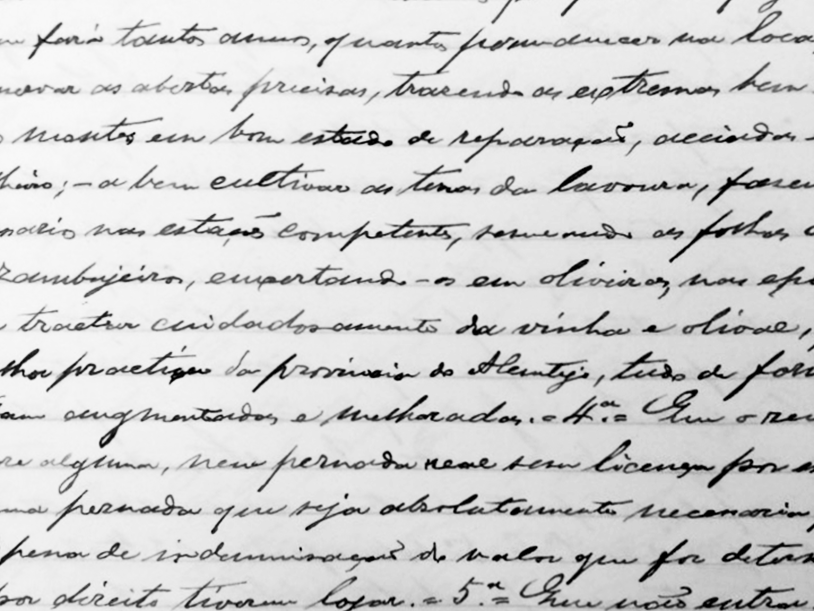 fará tantos annos, quantos permanecer na loca
novar as abertas precisas, trazendo as extremas bem
montes em bom estado de reparação, acciados
lheiro; - a bem cultivar as terras da lavoura, fazen
nario nas estações competentes, semeando as folhas
zambujeiros, enxertando-os em oliveiras, nas epo
tractar cuidadosamente da vinha e olival,
lhor practica da provincia do Alemtejo, tudo de form
augmentadas e melhoradas. = 4.ª = Que o ren
re alguma, nem pernada real sem licença por es
ma pernada que seja absolutamente necessaria
pena de indemnisação do valor que for determ
por direito tiverem logar. = 5.ª = Que não entra